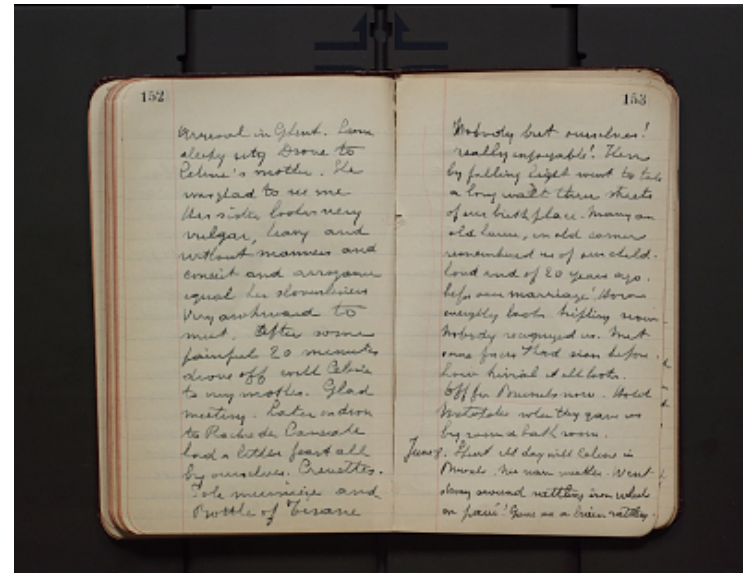 152
Arrival in Ghent. Same
sleepy city Drove to
Celine's mother. She
was glad to see me
Her sister looks very
vulgar, heavy and
without manners and
conceit and arrogance
equal her slovenliness
Very awkward to
meet. After some
painful 20 minutes
drove off with Celine
to my mother. Glad
meeting. Later on drove
to Rocher de Cancale
had a little feast all
by ourselves. Crevettes.
Sole meunière and
Bottle of Tisane
153
Nobody but ourselves!
really enjoyable! Then
by falling light went to take
a long walk thru streets
of our birthplace. Many an
old house, an old corner
remembered us of our child-
hood and of 20 years ago.
before our marriage! How
everything looks trifling now
Nobody recognized us. Met
once faces I had seen before.
how trivial it all looks.
Off for Brussels now. Hotel
Metropole where they gave us
big room & bath room.
June 9. Spent all day with Celine in
Brussels. Nice warm weather. Went
slowly around rattling iron wheels
on pavé! Gave us a brain rattling.